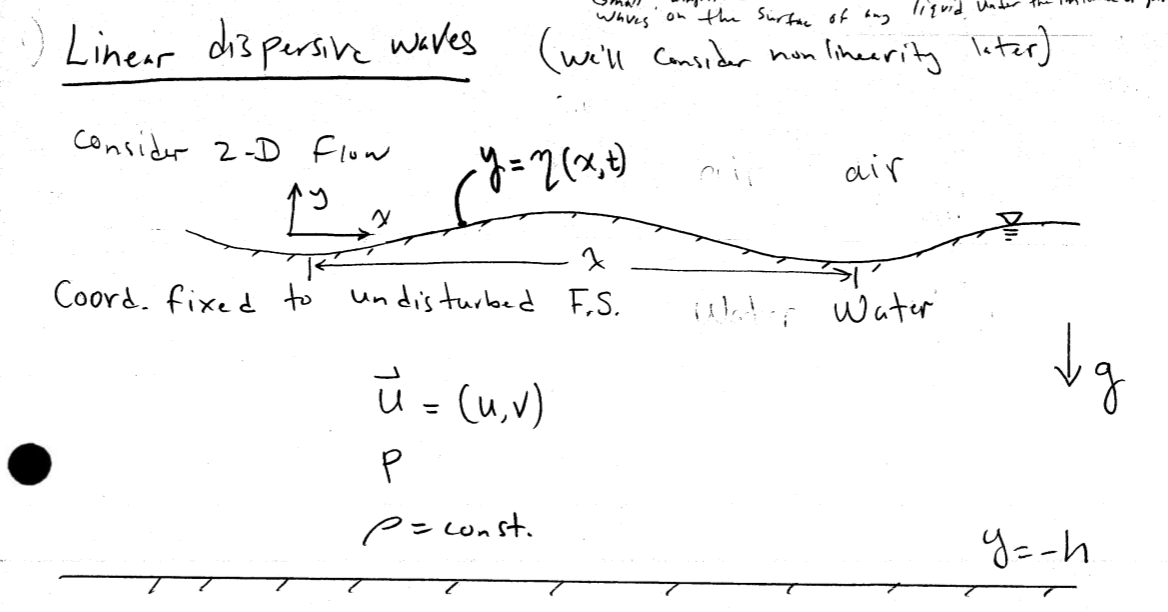 Small
waves on the surface of any liquid under the
Linear dispersive waves (we'll consider nonlinearity later)
Consider 2-D Flow
y = η(x,t)
air air
y
x
λ
Coord. fixed to undisturbed F.S. Water Water
g
u⃗ = (u,v)
P
ρ = const.
y = -h